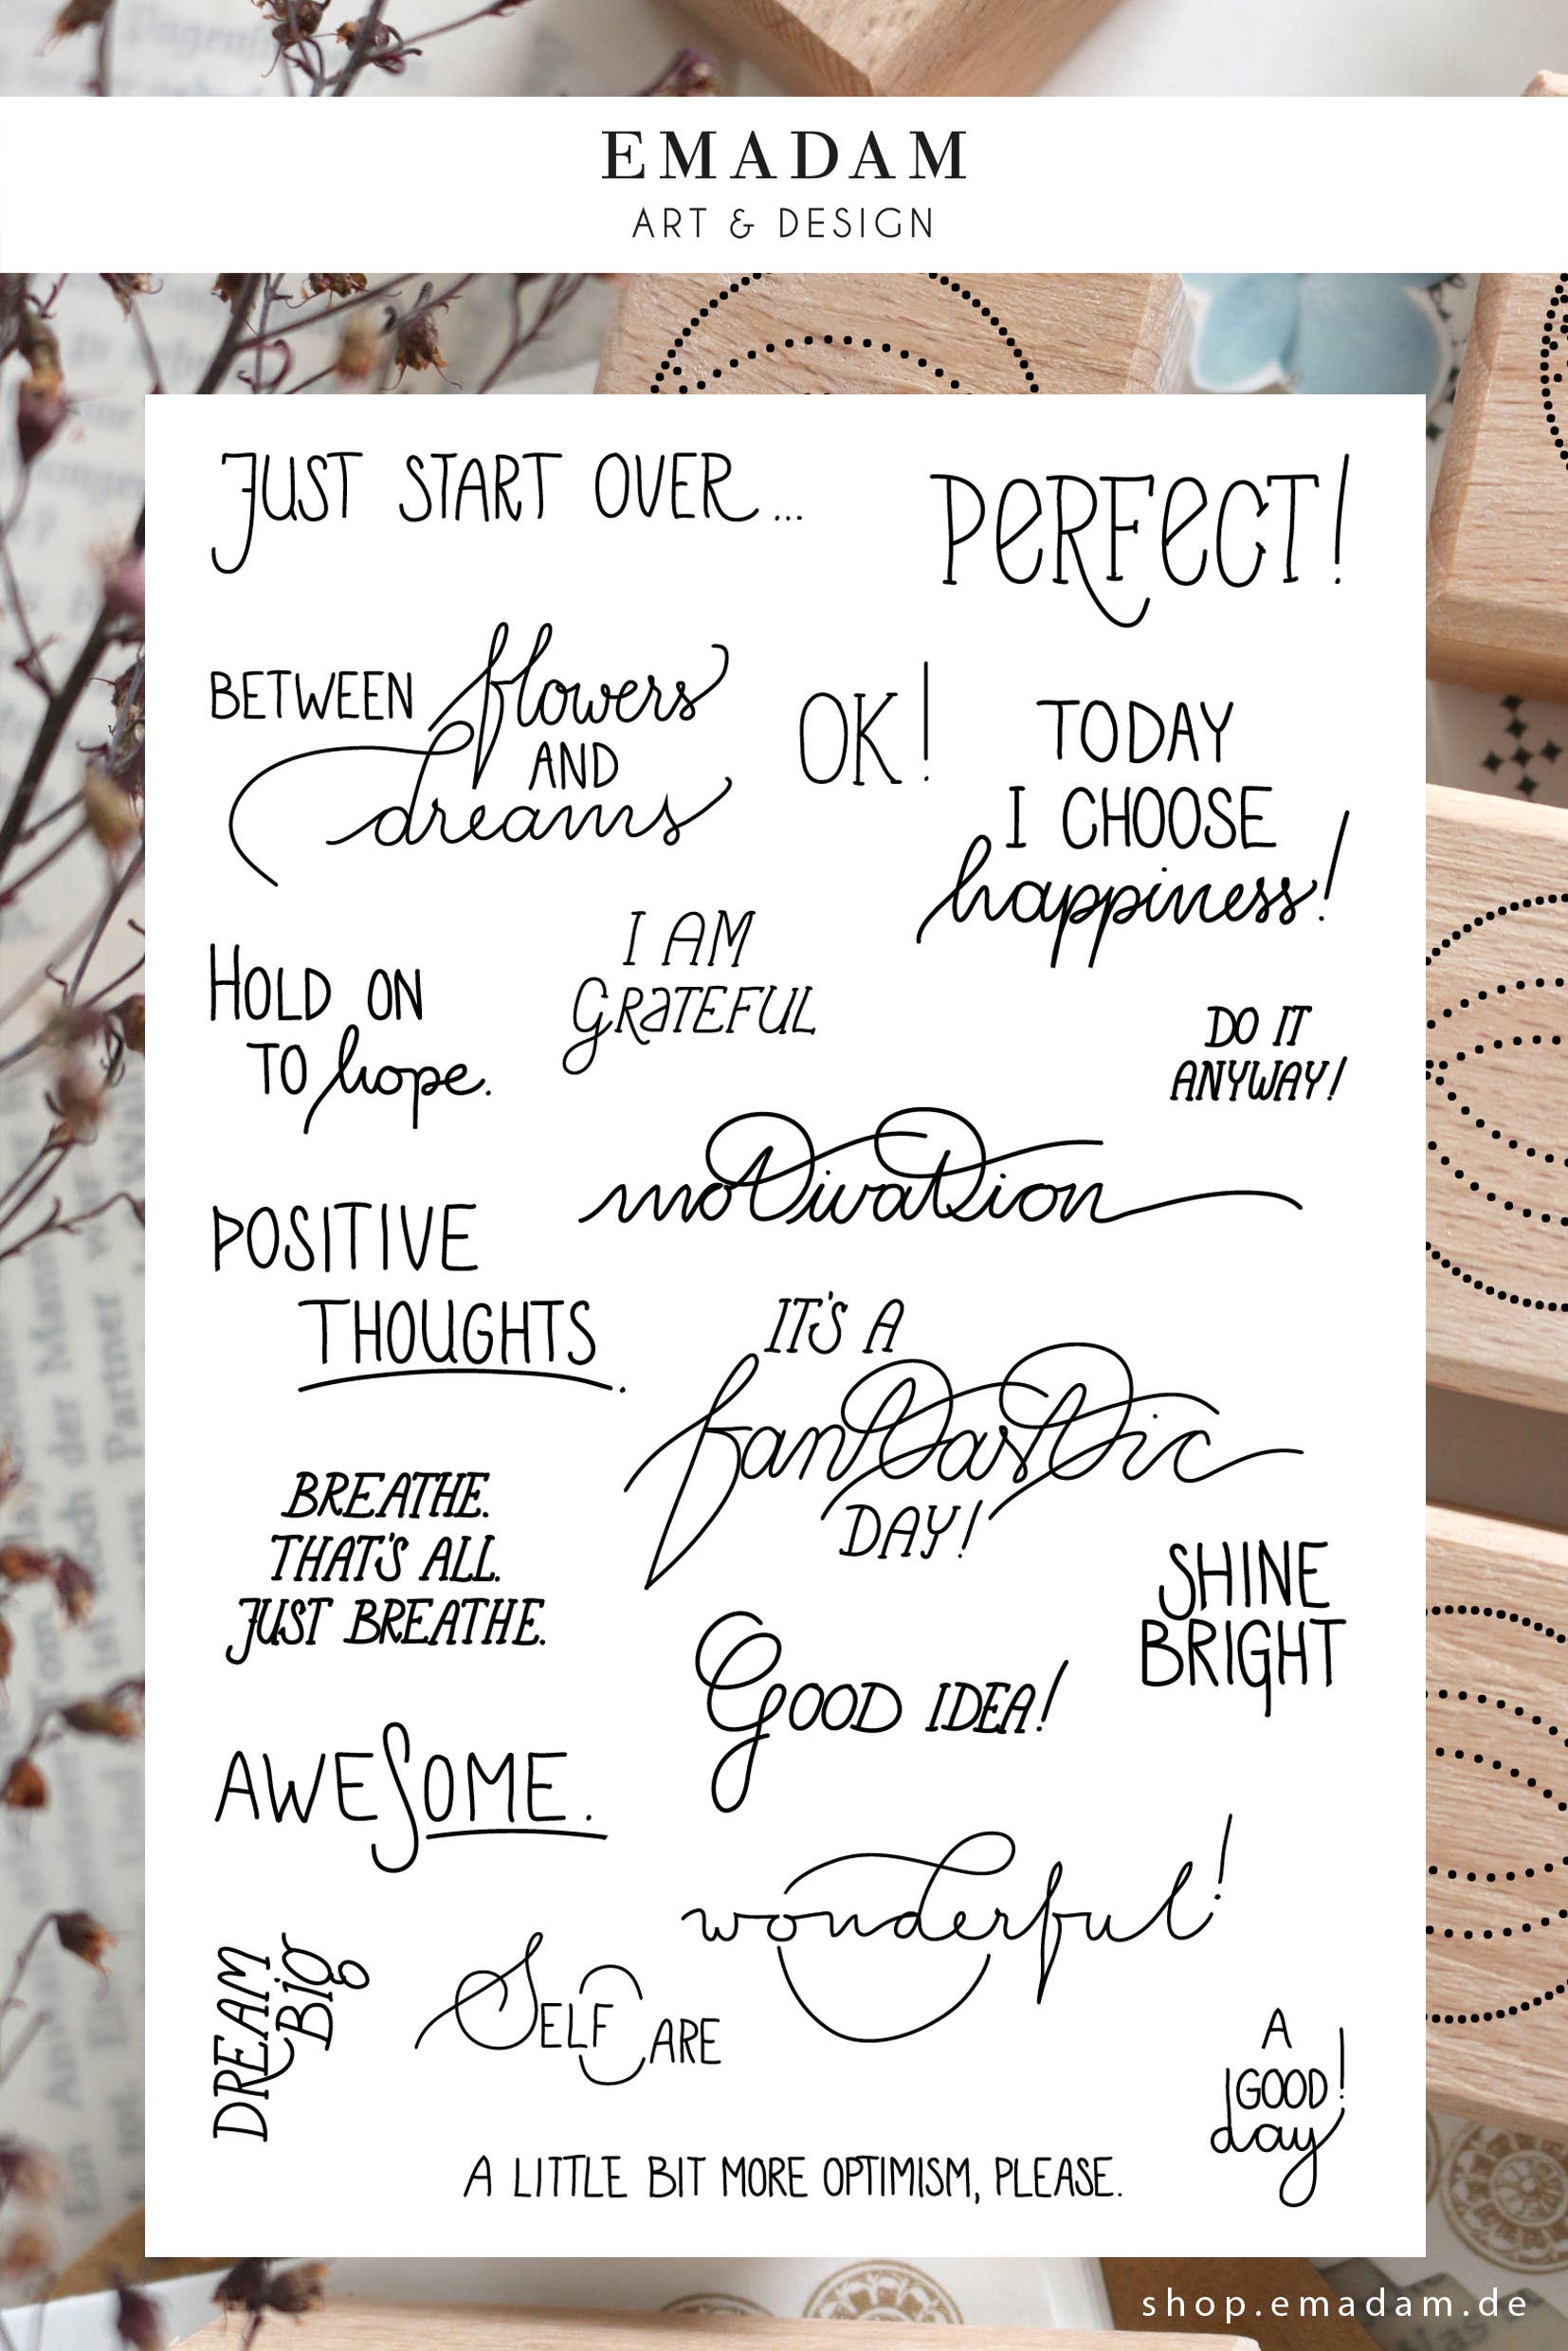 EMADAM
ART & DESIGN
JUST START OVER...
PERFECT!
BETWEEN flowers
AND
dreams
OK!
TODAY
I CHOOSE
happiness!
HOLD ON
TO hope.
I AM
GRATEFUL
DO IT
ANYWAY!
motivation
POSITIVE
THOUGHTS.
IT'S A
fantastic
DAY!
BREATHE.
THAT'S ALL.
JUST BREATHE.
SHINE
BRIGHT
GOOD IDEA!
AWESOME.
wonderful!
DREAM
BIG
SELF CARE
A
GOOD
day!
A LITTLE BIT MORE OPTIMISM, PLEASE.
shop.emadam.de